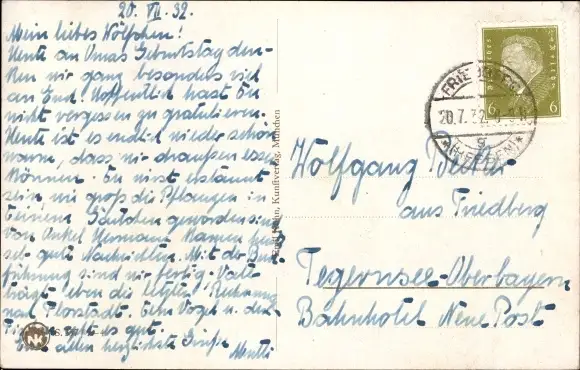 20. VII. 32.
Mein liebes Wölfchen!
Heute an Omas Geburtstag den-
ken wir ganz besonders viel
an Euch! Hoffentlich hast Du
nicht vergessen zu gratulieren.
Heute ist es endlich wieder schön
warm, dass wir draußen essen
können. Du wirst erstaunt
sein wie groß die Pflanzen in
Deinem Gärtchen geworden sind.
Von Onkel Hermann kamen
gute Nachrichten. Mit der
sind wir fertig. Vater
trägt eben die letzte Rechnung
nach Florstadt. Dem Vogel u. den
es gut.
Dir allen herzlichste Grüße
Mutti
Kunstverlag, München
Deutsches Reich
6 6
FRIEDBERG
20.7.32
(HESSEN)
Wolfgang
aus Friedberg
Tegernsee-Oberbayern
Bahnhotel Neue Post